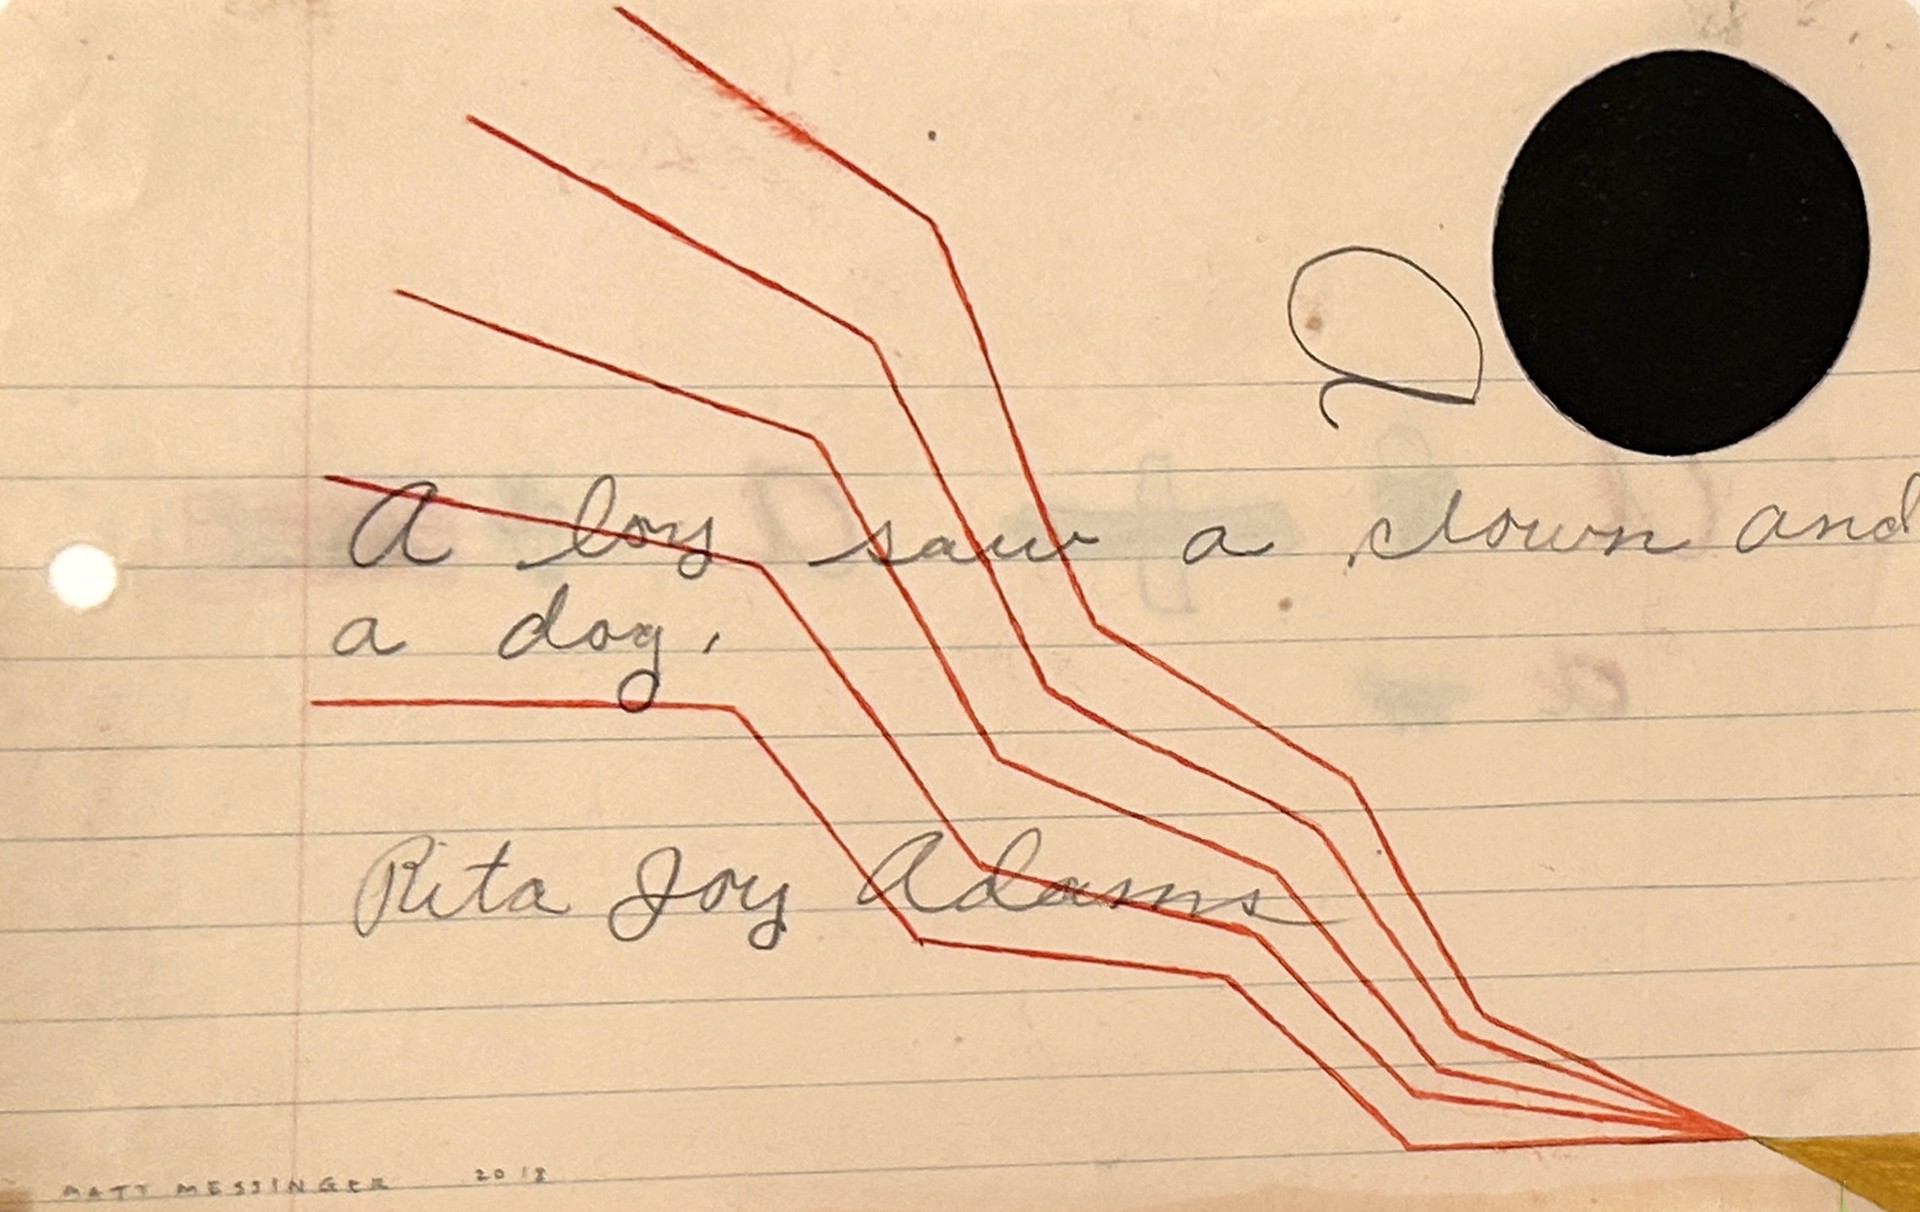 A boy saw a clown and
a dog.
Rita Joy Adams
MATT MESSINGER 2018